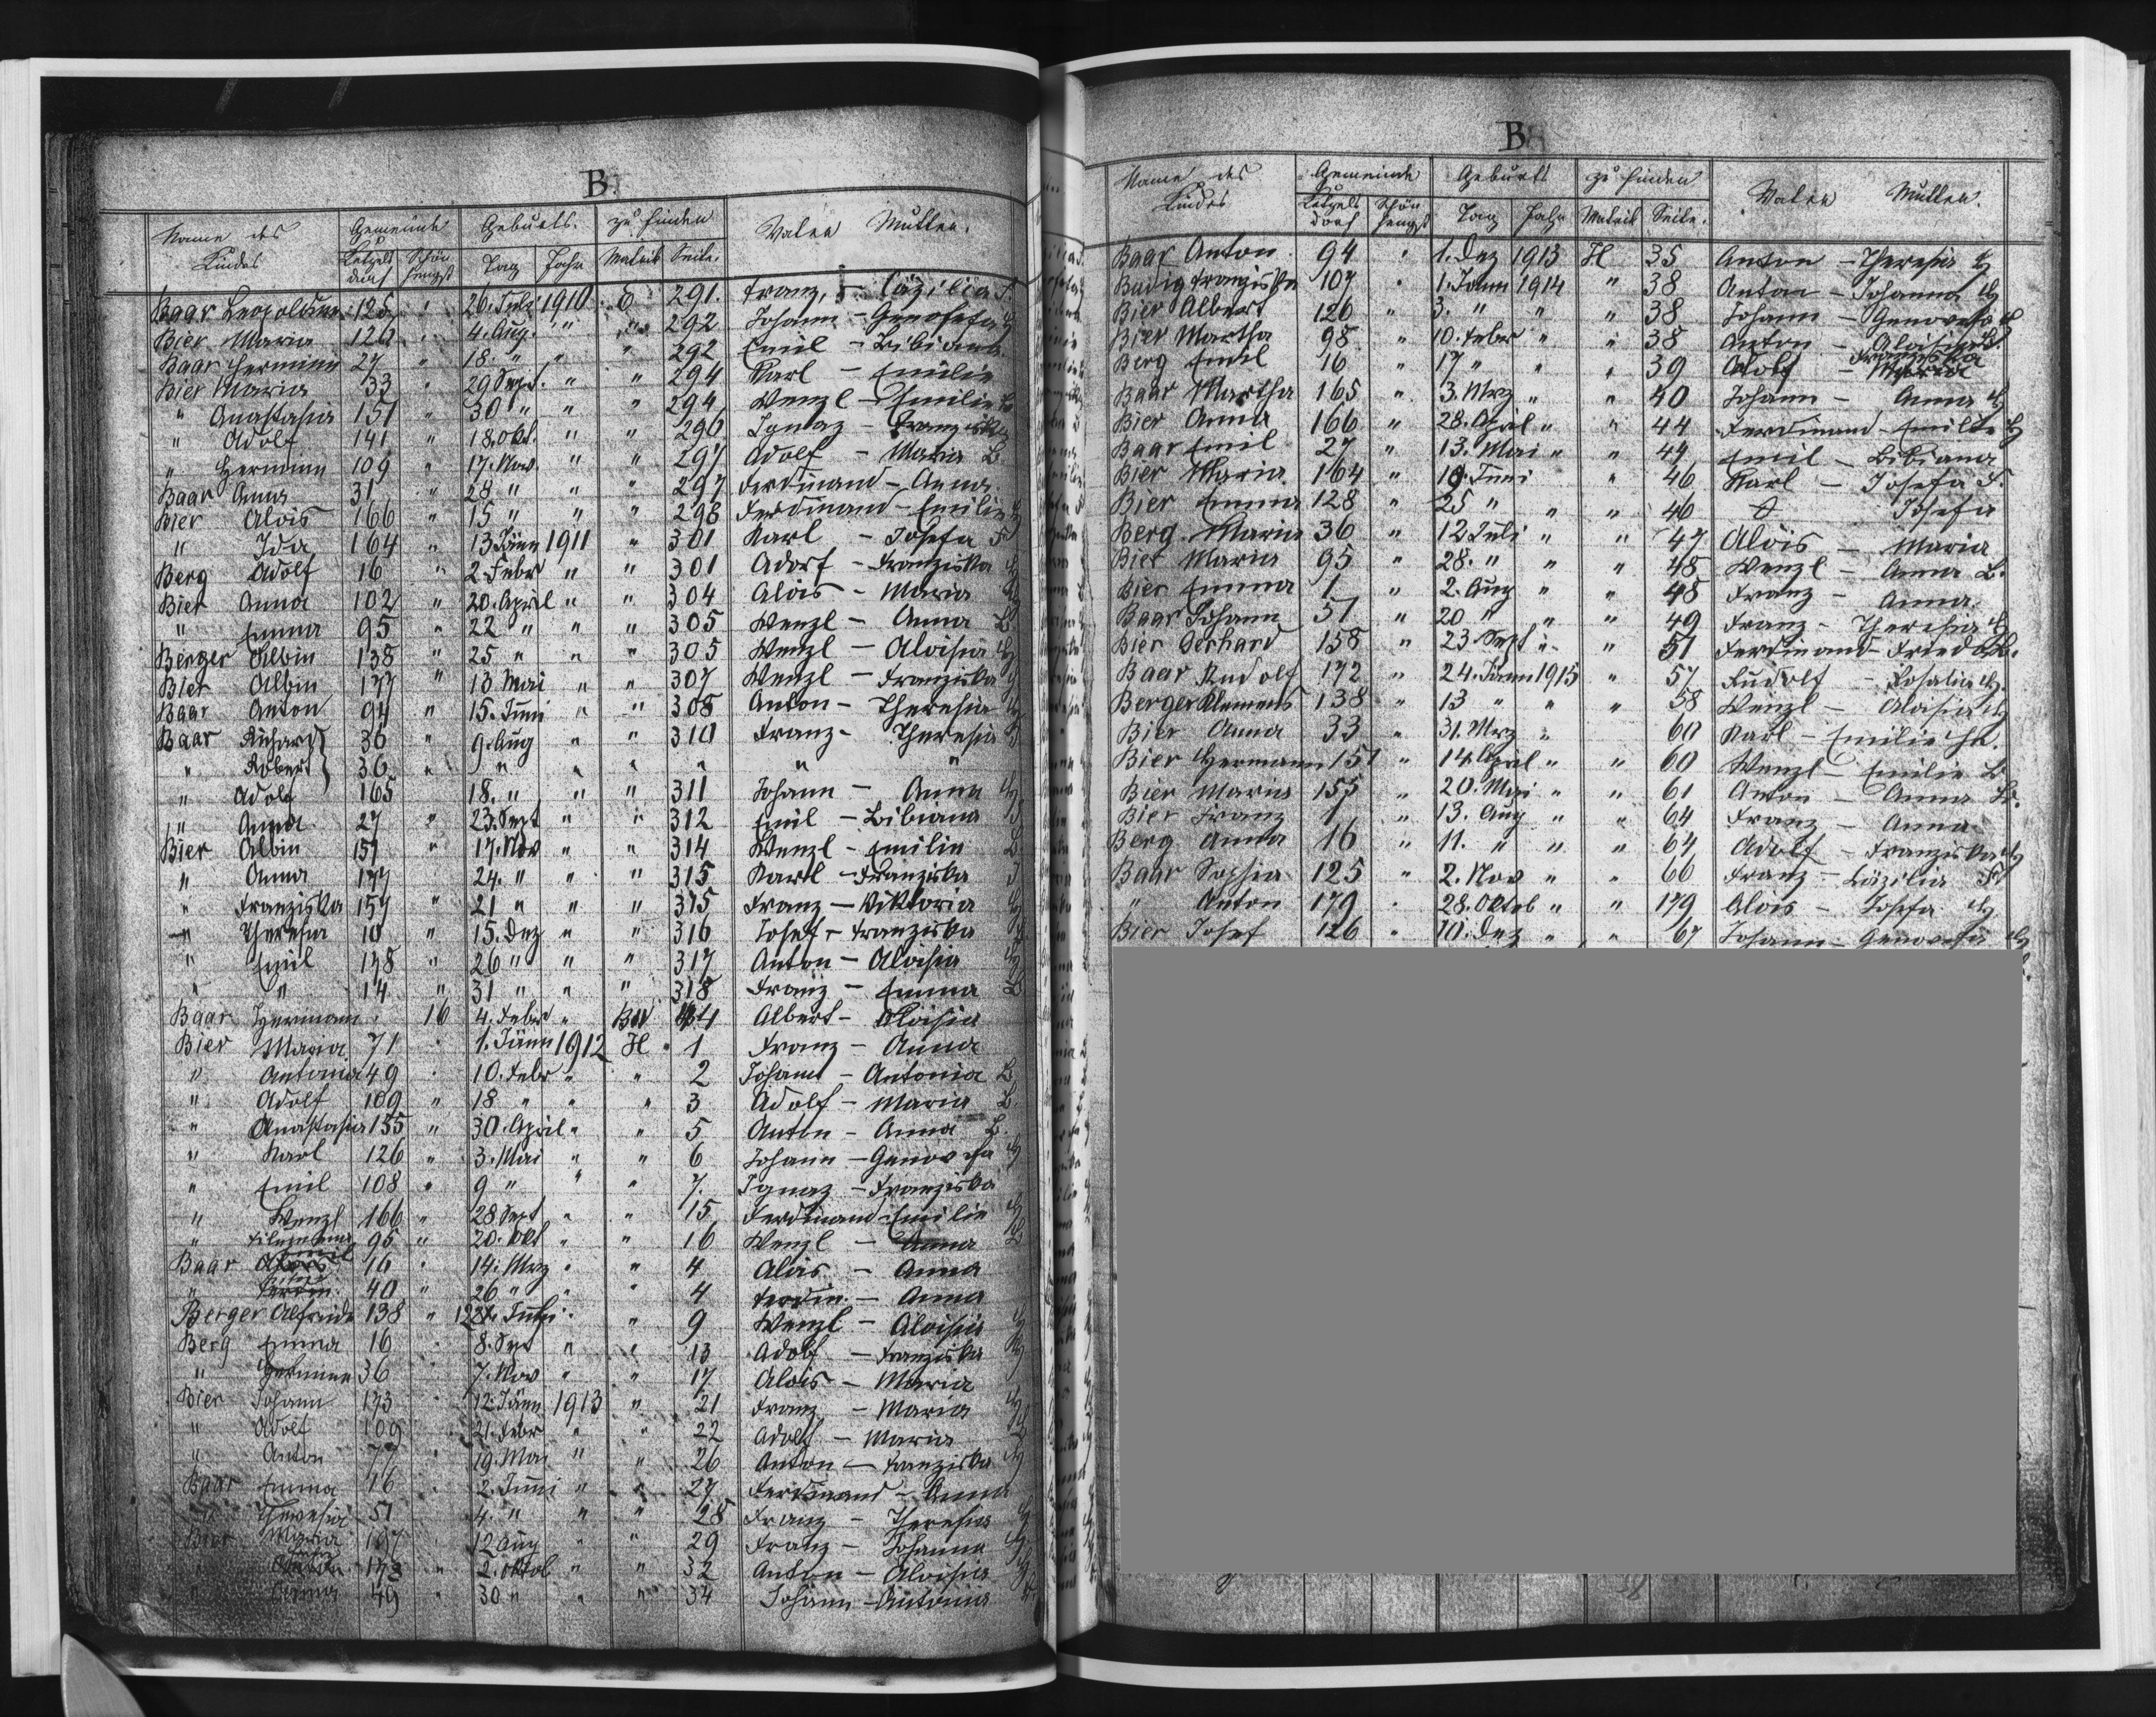 B
Name des Kindes Gemeinde Geburts. zu finden Vater Mutter.
Ketzelsdorf Schönhengst Tag Jahr Matrik Seite.
Baar Leopoldine 125 " 26. Juli 1910 E 291. Franz, - Cäzilia F.
Bier Maria 126 " 4. Aug. " " 292 Johann - Genofefa
Baar Hermine 27 18. " " " 292 Emil - Bibiana
Bier Maria 33 " 29 Sept. " " 294 Karl - Emilie
" Anastasia 151 " 30 " " " 294 Wenzl - Emilie B
" Adolf 141 " 18. Okt. " " 296 Ignaz - Franziska
" Hermine 109 " 17. Nov. " " 297 Adolf - Maria B
Baar Anna 31 " 28 " " " 297 Ferdinand - Anna
Bier Alois 166 " 15 " " " 298 Ferdinand - Emilie
" Ida 164 " 13 Jänn 1911 " 301 Karl - Josefa F
Berg Adolf 16 " 2. Febr " " 301 Adorf - Franziska
Bier Anna 102 " 20. April " " 304 Alois - Maria
" Emma 95 " 22 " " " 305 Wenzl - Anna B
Berger Albin 138 " 25 " " " 305 Wenzl - Aloisia
Bier Albin 177 " 13 Mai " " 307 Wenzl - Franziska
Baar Anton 94 " 15. Juni " " 308 Anton - Theresia
Baar Richard 36 " 9. Aug " " 310 Franz - Theresia
" Robert 36 " " " " " " "
" Adolf 165 18. " " " 311 Johann - Anna
" Anna 27 " 23. Sept " " 312 Emil - Bibiana
Bier Albin 151 " 17. Nov " " 314 Wenzl - Emilie B
" Anna 177 24. " " " 315 Karl - Franziska
" Franziska 157 " 21 " " " 315 Franz - Viktoria
" Theresia 10 " 15. Dez " " 316 Josef - Franziska
" Emil 178 " 26 " " " 317 Anton - Aloisia
" " 14 " 31 " " " 318 Franz - Emma B
Baar Hermann 16 4. Febr " Albert - Aloisia
Bier Maria 71 1. Jänn 1912 H 1 Franz - Anna
" Antonia 49 10. Febr " " 2 Johann - Antonia B
" Adolf 109 " 18 " " " 3 Adolf - Maria B.
" Anastasia 155 " 30. April " " 5 Anton - Anna B.
" Karl 126 " 3. Mai " " 6 Johann - Genovefa
" Emil 108 " 9 " " " 7. Ignaz - Franziska
" Wenzl 166 " 28. Sept " " 15 Ferdinand - Emilie
" 95 " 20. Okt " " 16 Wenzl - Anna
Baar Emil 16 " 14. Mrz " " 4 Alois - Anna
" 40 " 26 " " " 4 Ferdin. - Anna
Berger Alfrieda 138 " 9 Wenzl - Aloisia
Berg Emma 16 8. Sept " " 13 Adolf - Franziska
" Hermine 36 7. Nov " " 17 Alois - Maria
Bier Johann 173 12. Jänn 1913 " 21 Franz - Maria
" Adolf 109 21. Febr " " 22 Adolf - Maria
" Anton 77 19. Mai " " 26 Anton - Franziska
Baar Emma 16 2. Juni " " 27 Ferdinand - Anna
" Theresia 51 4. " " " 28 Franz - Theresia
Bier Maria 107 12 Aug " " 29 Franz - Johanna
" 178 " 2. Oktob " " 32 Anton - Aloisia
" Anna 49 30 " " " 34 Johann - Antonia
B
Name des Kindes Gemeinde Geburts zu finden Vater Mutter.
Ketzelsdorf Schönhengst Tag Jahr Matrik Seite.
Baar Anton 94 " 1. Dez 1913 H 35 Anton - Theresia
Budig Franziska 107 " 1. Jänn 1914 " 38 Anton - Johanna
Bier Albert 126 " 3. " " " 38 Johann - Genovefa
Bier Martha 98 " 10. Febr " " 38 Anton - Aloisia
Berg Emil 16 " 17 " " " 39 Adolf - Franziska
Baar Martha 165 " 3. Mrz " " 40 Johann - Anna
Bier Anna 166 " 28. April " " 44 Ferdinand - Emilie
Baar Emil 27 " 13. Mai " " 44 Emil - Bibiana
Bier Maria 164 " Juni " 46 Karl - Josefa F.
Bier Emma 128 " 25 " " " 46 Josefa
Berg Maria 36 " 12 Juli " " 47 Alois - Maria
Bier Maria 95 " 28. " " " 48 Wenzl - Anna B.
Bier Emma 1 " 2. Aug " " 48 Franz - Anna.
Baar Johann 51 " 20 " " " 49 Franz - Theresia
Bier Gerhard 158 " 23 Sept " " 51 Ferdinand - Frieda B.
Baar Rudolf 172 " 24. Jänn 1915 " 57 Rudolf - Rosalia
Berger Klemens 138 " 13 " " " 58 Wenzl - Aloisia
Bier Anna 33 " 31. Mrz " 60 Karl - Emilie
Bier Hermann 151 " 14 April " " 60 Wenzl - Emilie B
Bier Maria 155 " 20. Mai " " 61 Anton - Anna B.
Bier Franz 1 " 13. Aug " " 64 Franz - Anna
Berg Anna 16 " 11. " " " 64 Adolf - Franziska
Baar Sofia 125 " 2. Nov " " 66 Franz - Cäzilia F
" Anton 179 " 28. Oktob " " 179 Alois - Josefa
Bier Josef 126 " 10. Dez " " 67 Johann - Genovefa